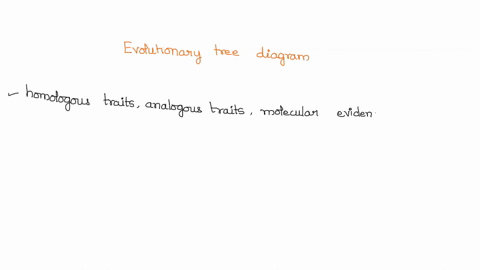 Evolutionary tree diagram
- homologous traits, analogous traits, molecular eviden